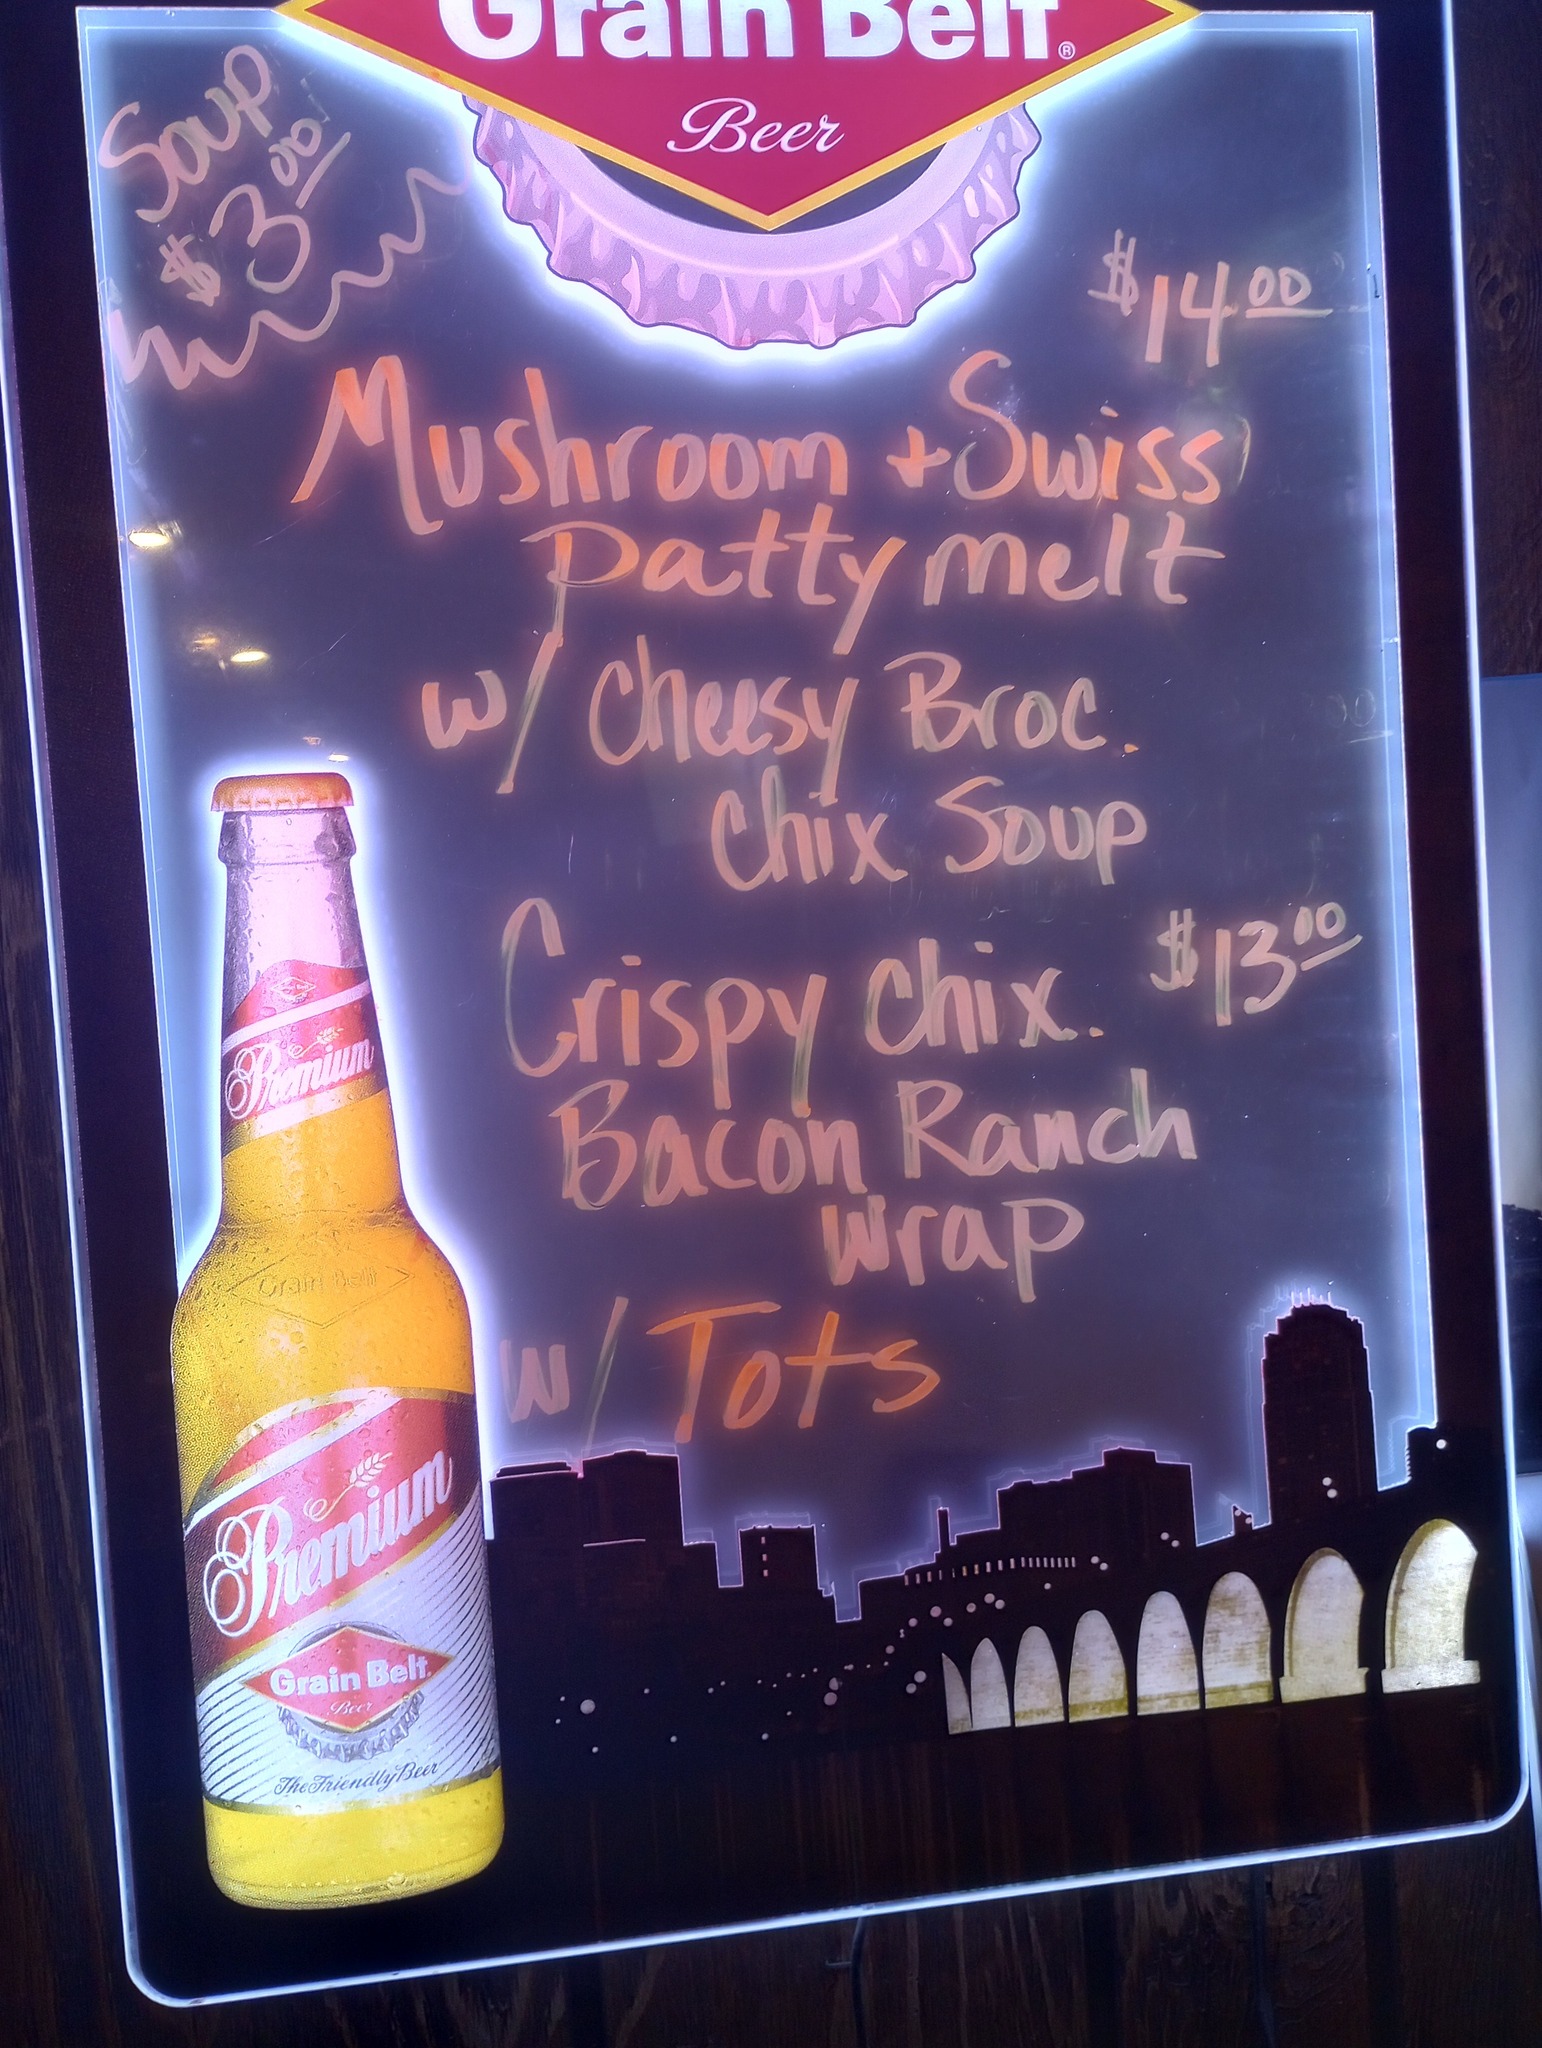 Grain Belt®
Beer
Soup
$3.00
$14.00
Mushroom + Swiss
patty melt
w/ Cheesy Broc.
Chix Soup
Crispy Chix. $13.00
Bacon Ranch
Wrap
w/ Tots
Premium
Grain Belt
Premium
Grain Belt
Beer
The Friendly Beer